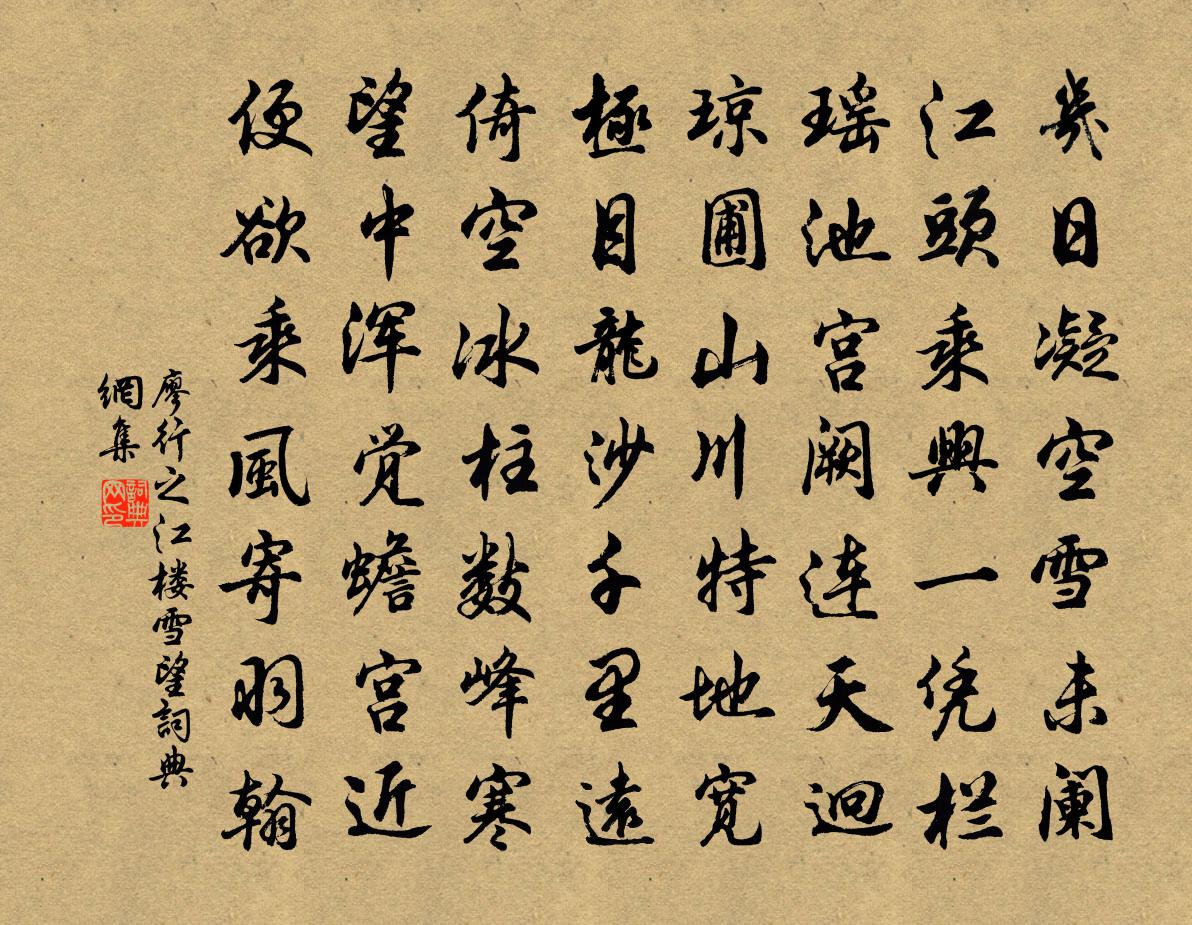 幾日凝空雪未阑
江頭乘興一凭栏
瑶池宫阙連天迥
琼圃山川特地宽
極目龍沙千里遠
倚空冰柱数峰寒
望中浑觉蟾宫近
便欲乘風寄羽翰
廖行之江楼雪望詞典
網集
詞典
网印